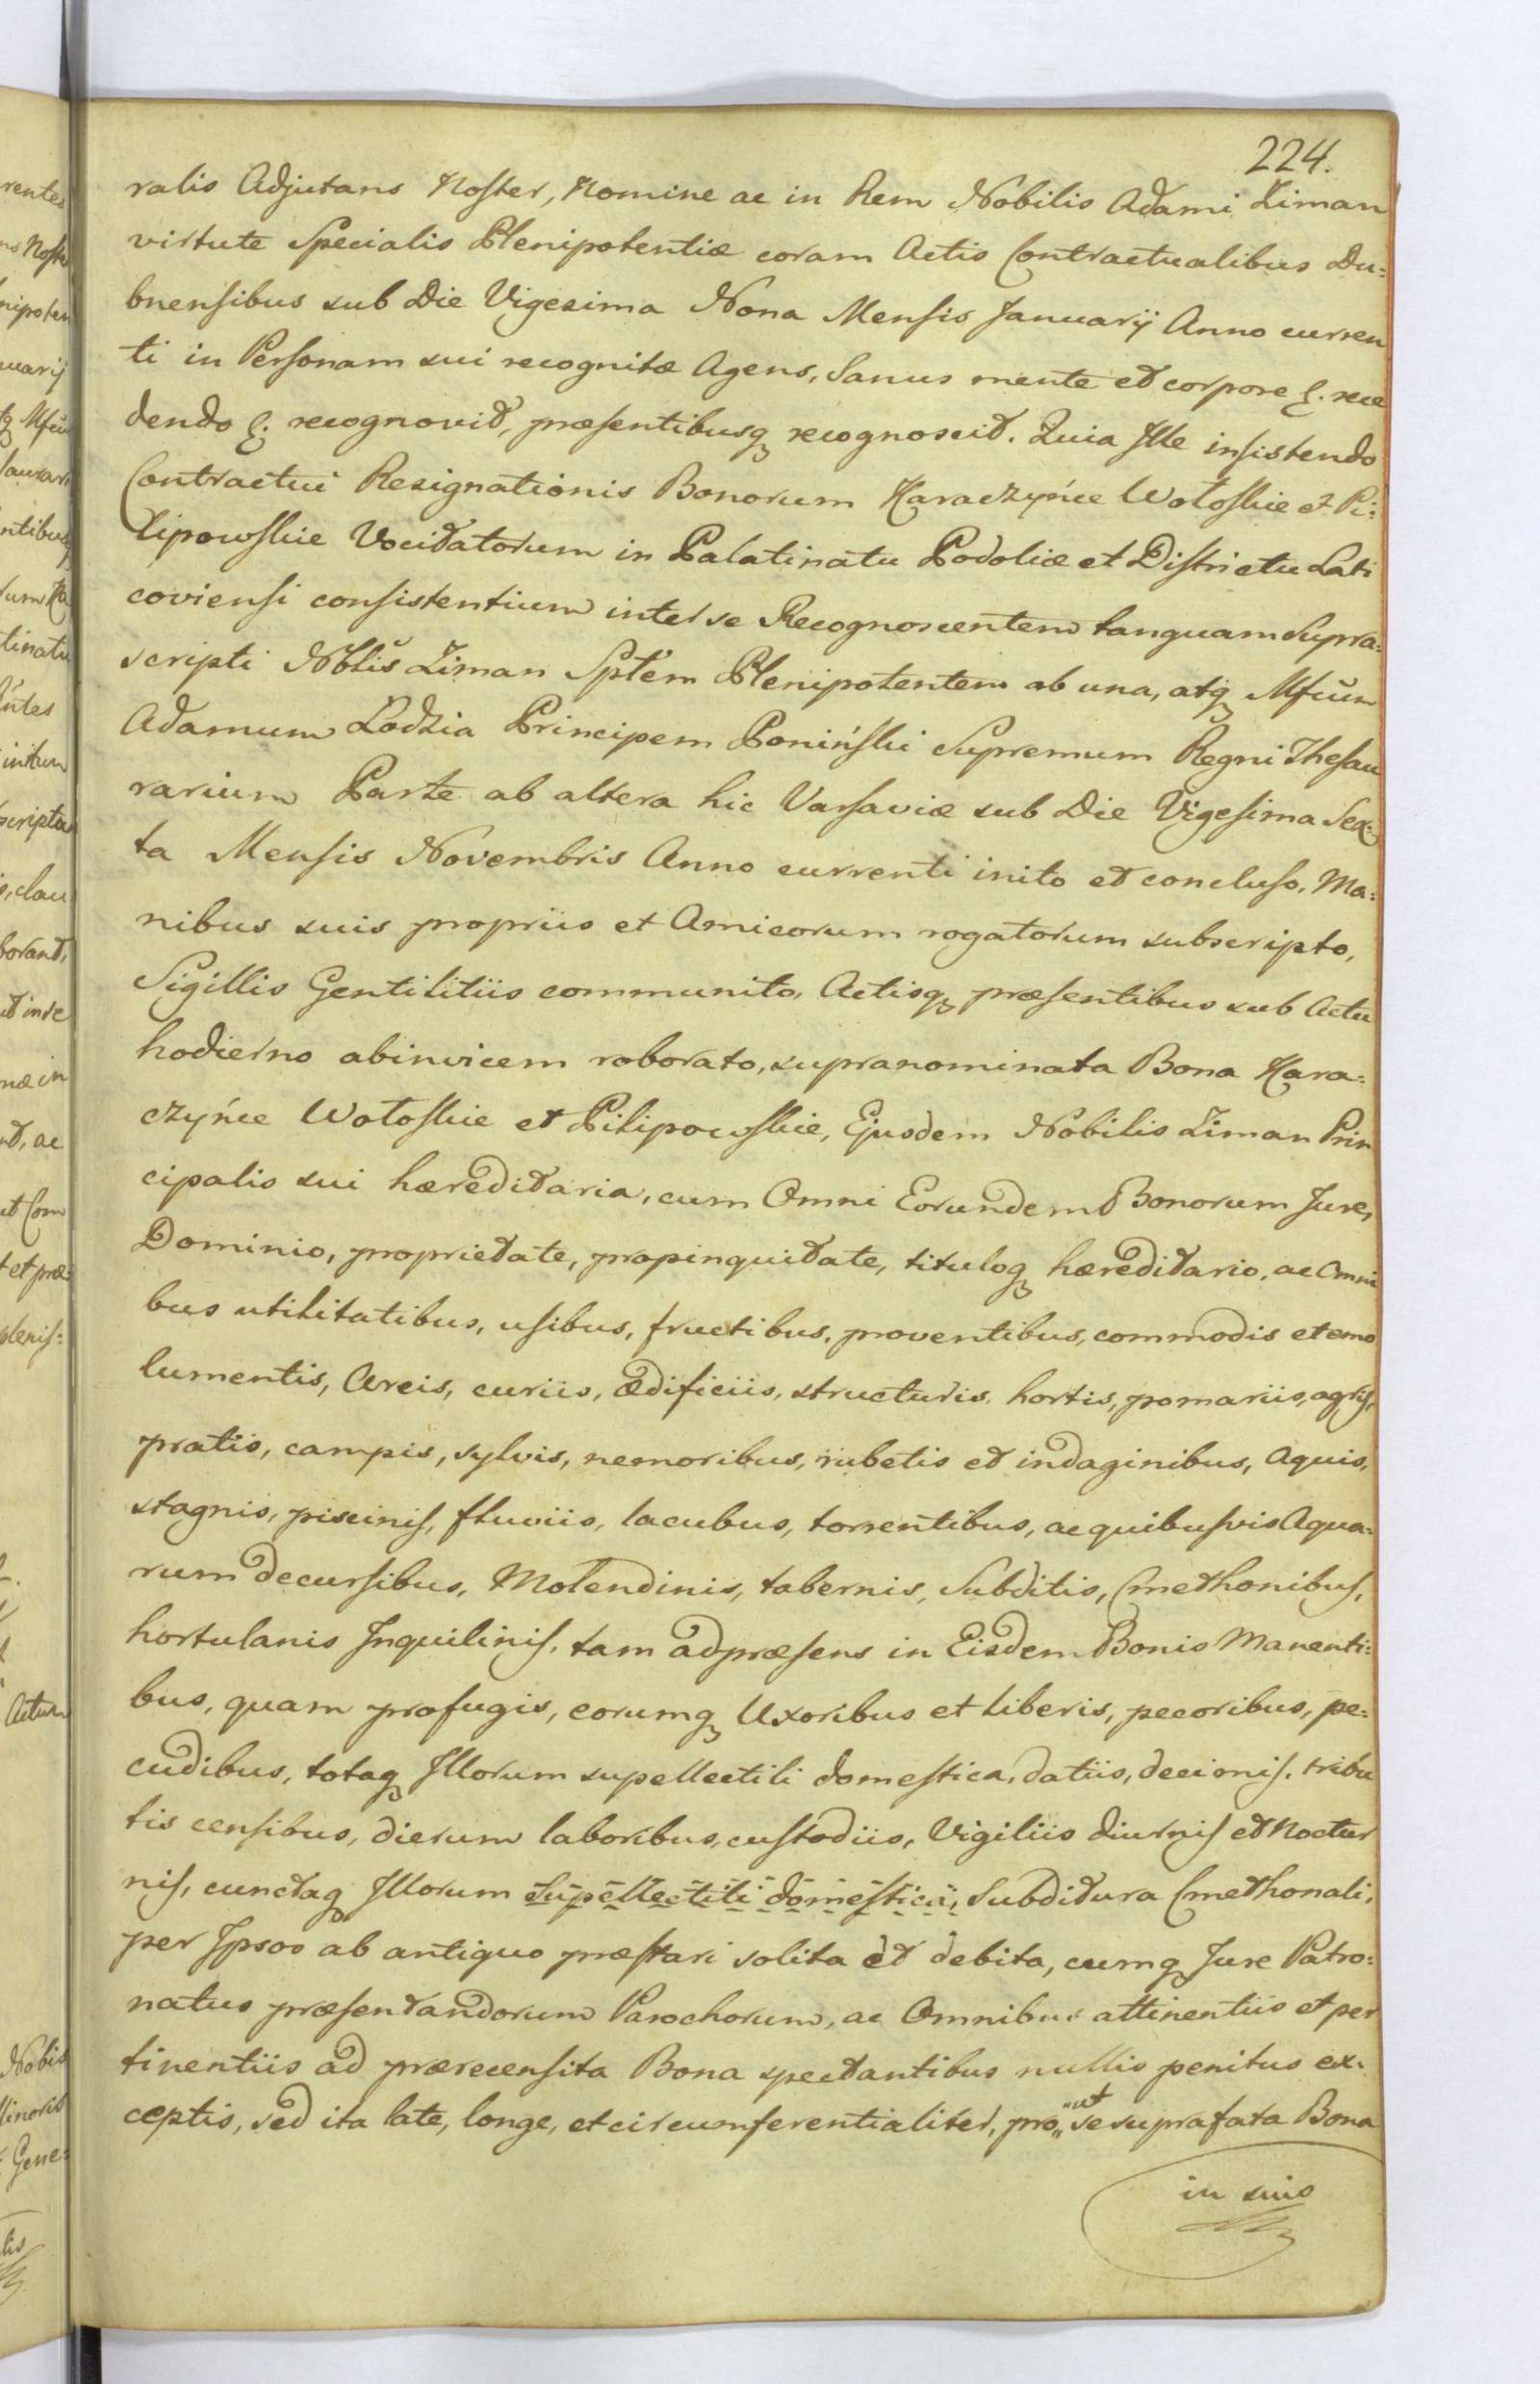 224.
ralis Adjutans Noster, Nomine ac in Rem Nobilis Adami Ziman
virtute Specialis Plenipotentiæ coram Actis Contractualibus Du=
bnensibus sub Die Vigesima Nona Mensis Januarij Anno curren
ti in Personam sui recognitæ Agens, Sanus mente et corpore &. rece
dendo &. recognovit, præsentibusq recognoscit. Quia Ille insistendo
Contractui Resignationis Bonorum Karaczyńce Wołoskie et Pi=
lipowskie Vocitatorum in Palatinatu Podoliæ et Districtu Lati
coviensi consistentium inter se Recognoscentem tanquam Supra=
scripti Nblis Ziman Spłem Plenipotentem ab una, atq Mfcum
Adamum Lodzia Principem Poniński Supremum Regni Thesau
rarium Parte ab altera hic Varsaviæ sub Die Vigesima Sex=
ta Mensis Novembris Anno currenti inito et concluso, Ma=
nibus suis propriis et Amicorum rogatorum subscripto,
Sigillis Gentilitiis communito, Actisq præsentibus sub Actu
hodierno abinvicem roborato, supranominata Bona Kara=
czyńce Wołoskie et Pilipowskie, Ejusdem Nobilis Ziman Prin
cipalis sui hæreditaria, cum Omni Eorundem Bonorum Jure,
Dominio, proprietate, propinquitate, tituloq hæreditario, ac Omni
bus utilitatibus, usibus, fructibus, proventibus, commodis et emo
lumentis, Areis, curiis, ædificiis, structuris, hortis, pomariis, agris,
pratis, campis, sylvis, nemoribus, rubetis et indaginibus, Aquis,
stagnis, piscinis, fluviis, lacubus, torrentibus, ac quibusvis Aqua=
rum decursibus, Molendinis, tabernis, Subditis, Cmethonibus,
hortulanis Inquilinis, tam ad præsens in Eisdem Bonis Manenti=
bus, quam profugis, eorumq Uxoribus et liberis, pecoribus, pe=
cudibus, totaq Illorum supellectili domestica, datiis, decimis, tribu
tis censibus, dierum laboribus, custodiis, Vigiliis diurnis et Noctur
nis, cunctaq Illorum Supellectili domestica, Subditura Cmethonali,
per Ipsos ab antiquo præstari solita et debita, cumq Jure Patro=
natus præsentandorum Parochorum, ac Omnibus attinentiis et per
tinentiis ad prærecensita Bona spectantibus nullis penitus ex=
ceptis, sed ita late, longe, et circumferentialiter, pro ut se suprafata Bona
in suis